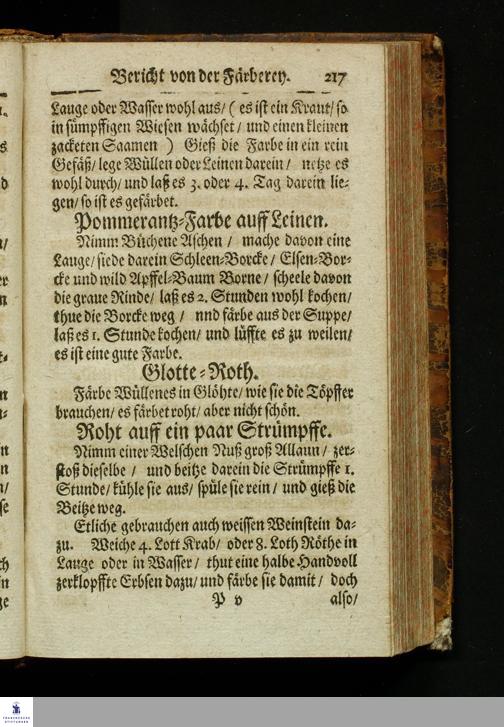 Bericht von der Färberey. 217
Lauge oder Wasser wohl aus/ ( es ist ein Kraut/ so
in sümpffigen Wiesen wächset/ und einen kleinen
zacketen Saamen ) Gieß die Farbe in ein rein
Gefäß/ lege Wüllen oder Leinen darein/ netze es
wohl durch/ und laß es 3. oder 4. Tag darein lie-
gen/ so ist es gefärbet.
Pommerantz-Farbe auff Leinen.
Nimm Büchene Aschen / mache davon eine
Lauge/ siede darein Schleen-Borcke/ Elsen-Bor-
cke und wild Apffel-Baum Borne/ scheele davon
die graue Rinde/ laß es 2. Stunden wohl kochen/
thue die Borcke weg / nnd färbe aus der Suppe/
laß es 1. Stunde kochen/ und lüffte es zu weilen/
es ist eine gute Farbe.
Glotte-Roth.
Färbe Wüllenes in Glöhte/ wie sie die Töpffer
brauchen/ es färbet roht/ aber nicht schön.
Roht auff ein paar Strümpffe.
Nimm einer Welschen Nuß groß Allaun/ zer-
stoß dieselbe / und beitze darein die Strümpffe 1.
Stunde/ kühle sie aus/ spüle sie rein / und gieß die
Beitze weg.
Etliche gebrauchen auch weissen Weinstein da-
zu. Weiche 4. Lott Krab/ oder 8. Loth Röthe in
Lauge oder in Wasser/ thut eine halbe Handvoll
zerklopffte Erbsen dazu/ und färbe sie damit/ doch
P v also/